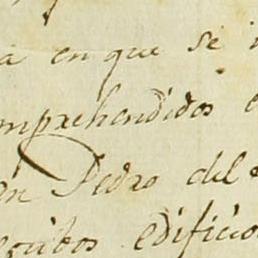 a en que se
omprehendidos
an Pedro del
critos edificios